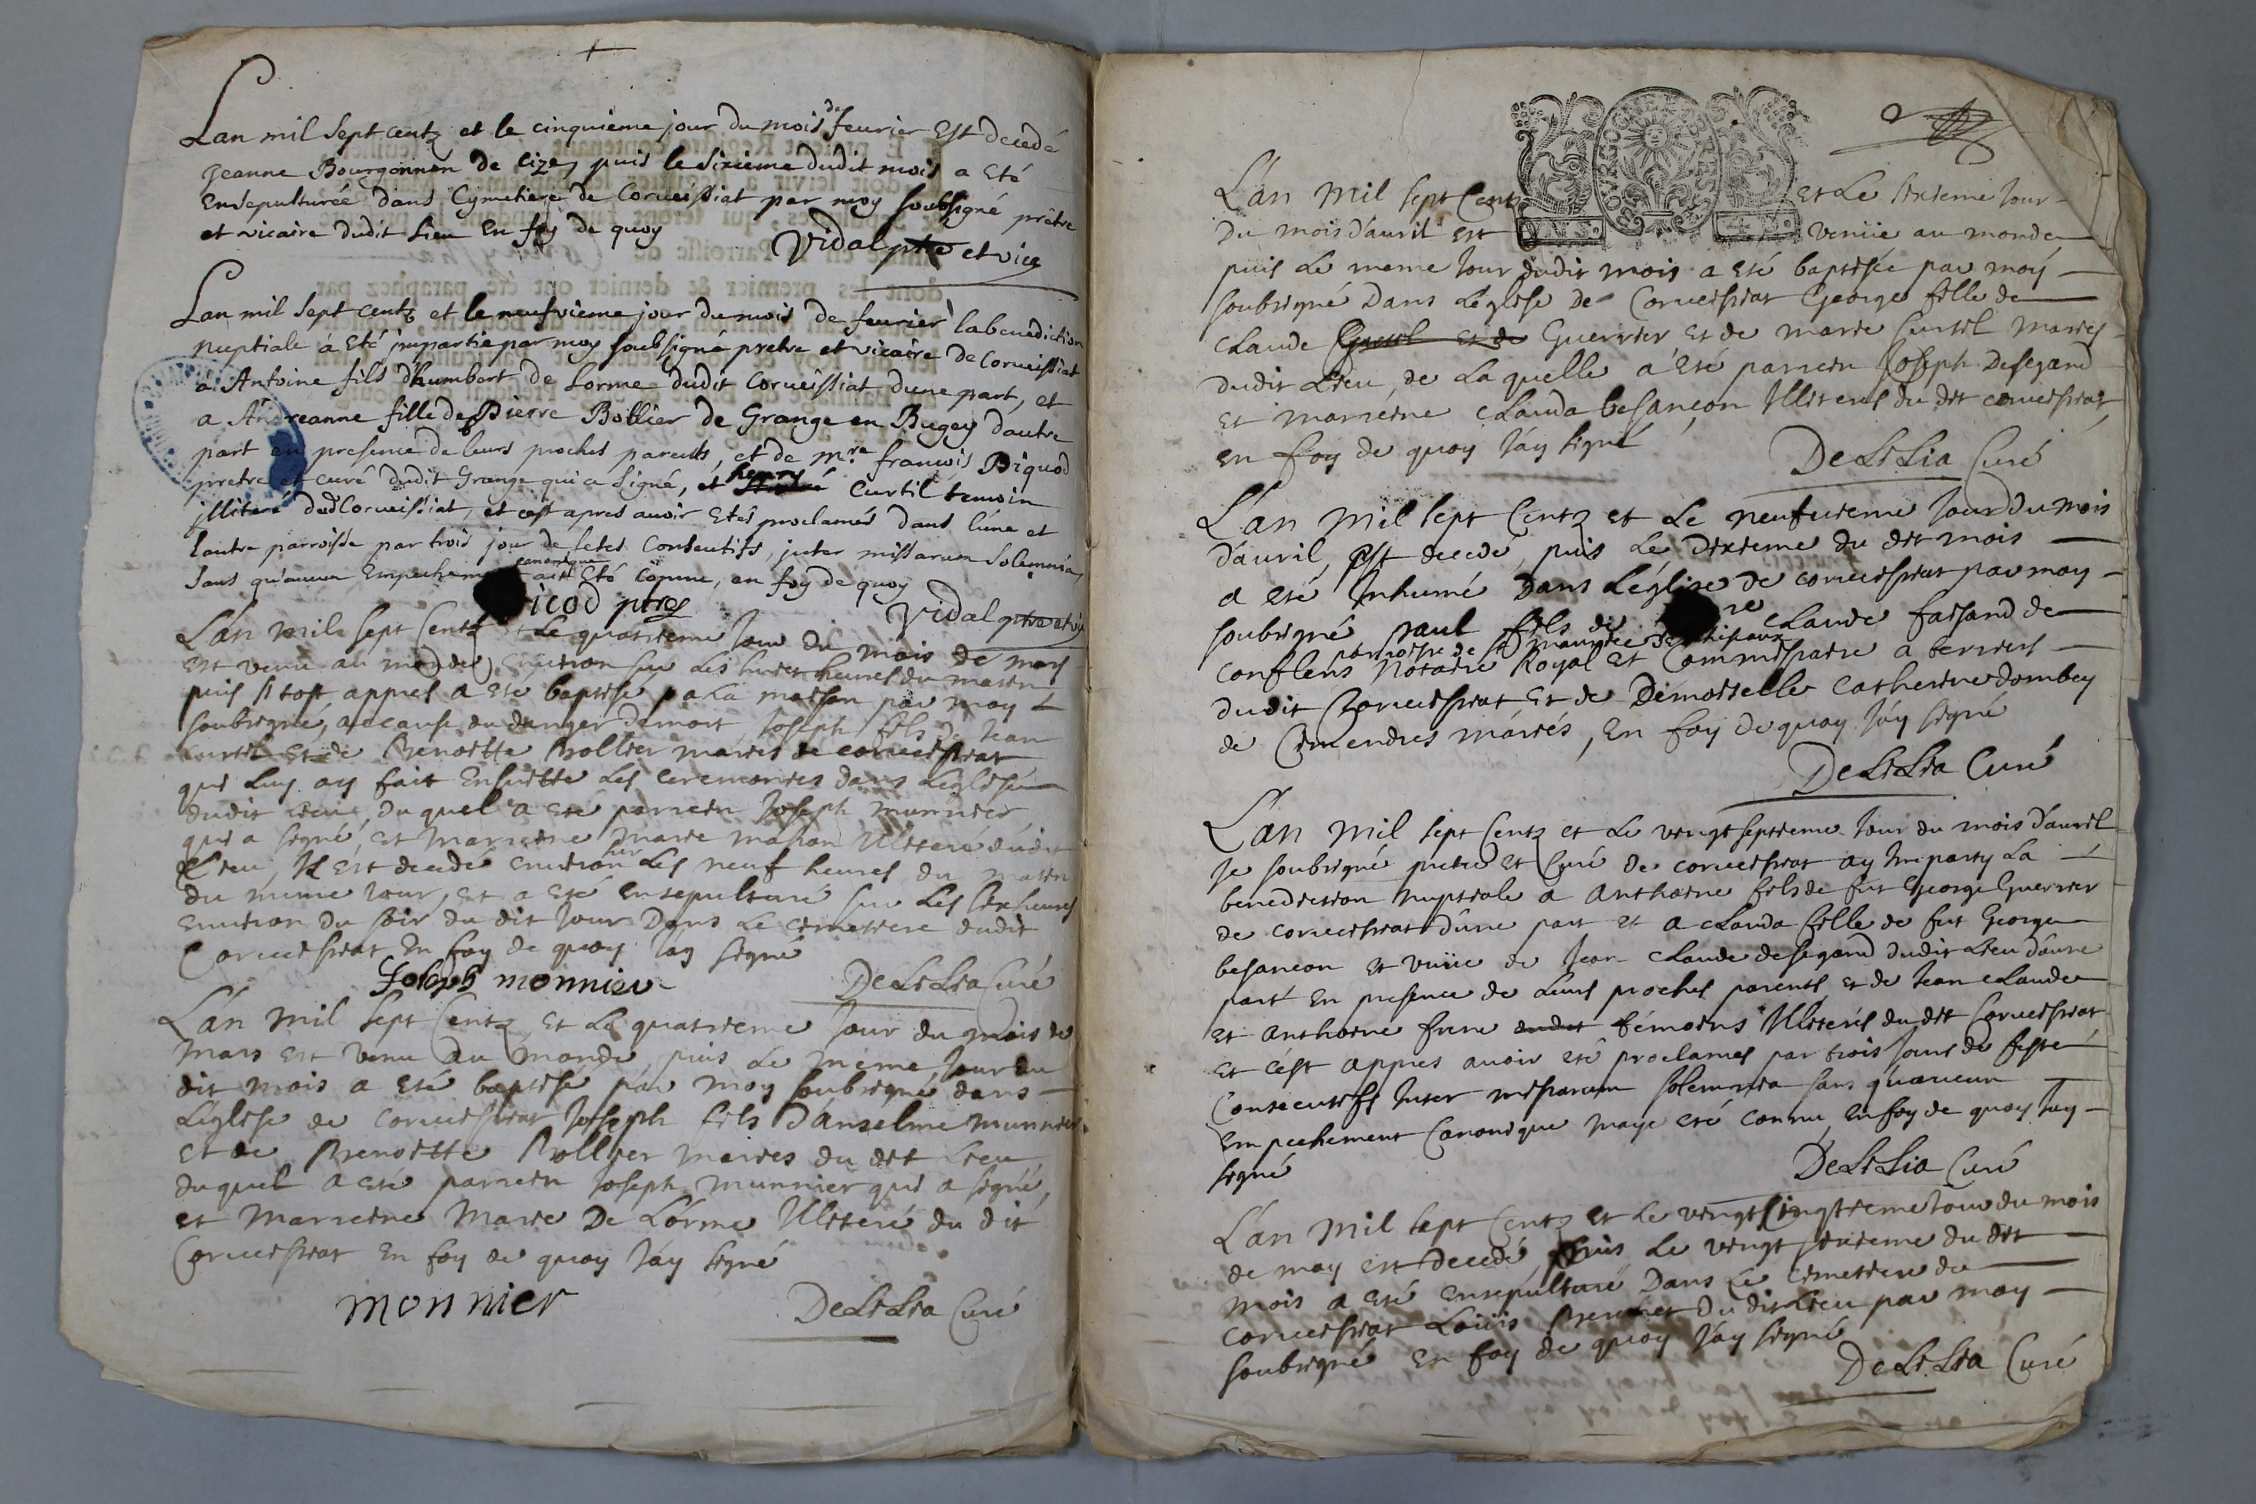 Lan mil sept centz et le cinquieme jour du mois de feurier Est decedé
Jeanne Bourgonnon de Cize, puis le sixieme dudit mois a Eté
Ensepulturée dans Cymetiere de Corveissiat par moy soubsigné prêtre
et vicaire dudit lieu En foy de quoy
Vidal ptre et vice
Lan mil sept centz et le neufvieme jour du mois de feurier la benediction
nuptiale á Eté impartie par moy soubsigné pretre et vicaire de Corveissiat
á Antoine fils d'humbert de Lorme dudit Corveissiat dune part, et
a Andreanne fille de Pierre Bollier de Grange en Bugey dautre
part en presence de leurs proches parents, et de mre francois Piquod
pretre et curé dudit Grange qui a signé, et henry Curtil temoin
illiteré dud Corveissiat, et cest apres avoir Etés proclamés dans l'une et
lautre parroisse par trois jour de fetes Consecutifs, inter missarum Solemnia,
sans qu'aucun Empechement canonique aitt Eté conue, en foy de quoy
icod ptre
Vidal ptre et vic
L'an mil sept Centz et Le quatrieme Jour du mois de mars
est venu au monde Environ sur Les huict heures du matin
puis si tost appres a esté baptisé pa La maison par moy
soubsigné, a cause du danger de mort, Joseph fils de Jean
Curtil et de Benoitte Bollier mariés de corveissiat
qui Luy ay fait Ensuitte Les ceremonies dans L'eglise
dudit Lieu, du quel a esté parrein Joseph munnier
qui a signé, et marreine marie masson Illiteré dudit
Lieu, Il est decedé environ sur Les neuf heures du matin
du mesme Jour, et a esté ensepulturé sur Les six heures
environ du soir du dit Jour Dans Le cimetiere dudit
Corveissiat en foy de quoy J'ay signé
Joseph monnier
DeLiLia Curé
L'an mil sept Centz et Le quatrieme Jour du mois de
mars est venu au monde, puis Le meme Jour du
dit mois a esté baptisé par moy soubsigné dans
L'eglise de corveissiat Joseph fils d'anselme munnier
et de Benoitte Bollier mariés du dit Lieu
duquel a esté parrein Joseph munnier qui a signé,
et marreine Marie De L'orme Illiteré du dit
Corveissiat en foy de quoy J'ay signé
monnier
DeLiLia Curé
L'an mil sept Centz et Le sixieme Jour
du mois d'auril est venüe au monde
puis Le meme Jour dudit mois a esté baptisée par moy
soubsigné Dans L'eglise de Corveissiat George fille de
Claude Curtil et de Guerrier et de marie Curtil mariés
dudit Lieu, de La quelle a esté parrein Joseph Desegand
et marreine Clauda besançon Illiterés du dit corveissiat
en foy de quoy J'ay signé
DeLiLia Curé
L'an mil sept Centz et Le neufvieme Jour du mois
d'auril, est decedé, puis Le dixieme du dit mois
a esté Inhumé Dans L'eglise de corveissiat par moy
soubsigné, paul fils de claude faisand de
parroisse de st maurice
conflens Notaire Royal et Commissaire a terriers
dudit Corveissiat et de Demoiselle Catherine dombey
de Cimendres mariés, en foy de quoy J'ay signé
DeLiLia Curé
L'an mil sept Centz et Le vingt septieme Jour du mois d'auril
Je soubsigné pretre et Curé de corveissiat ay Imparty La
benediction nuptiale a anthoine fils de fut George Guerrier
de corveissiat d'une part et a clauda fille de fut George
besançon et veuüe de Jean Claude desegand dudit Lieu d'autre
part En presence de Leurs proches parents et de Jean claude
et anthoine frere dudit témoins Illiterés du dit Corveissiat
et c'est appres auoir esté proclamés par trois Jours de feste
Consecutifs Inter missarum solemnia sans qu'aucun
empechement Canonique n'aye esté connu, en foy de quoy J'ay
signé
DeLiLia Curé
L'an mil sept Centz et Le vingt Cinqtieme Jour du mois
de may est decedé, puis Le vingt sixieme du dit
mois a esté ensepulturé Dans Le cimetiere de
corveissiat Loüis du dit Lieu par moy
soubsigné en foy de quoy J'ay signé
DeLiLia Curé